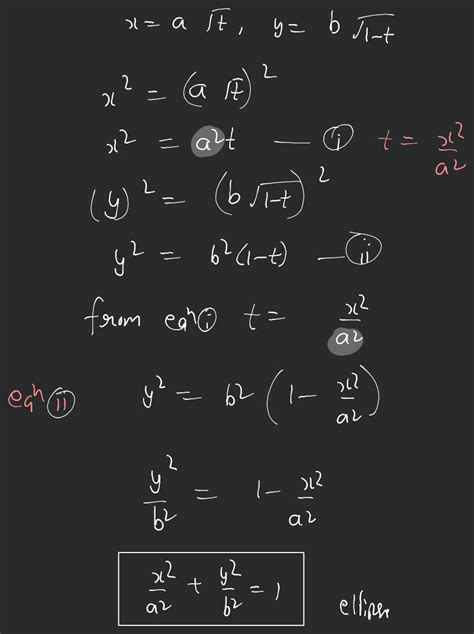 x = a √t, y = b √1-t
x² = (a √t)²
x² = a²t — (i) t = x²/a²
(y)² = (b √1-t)²
y² = b²(1-t) — (ii)
from eqn (i) t = x²/a²
eqn (ii) y² = b² (1 - x²/a²)
y²/b² = 1 - x²/a²
x²/a² + y²/b² = 1 ellipse